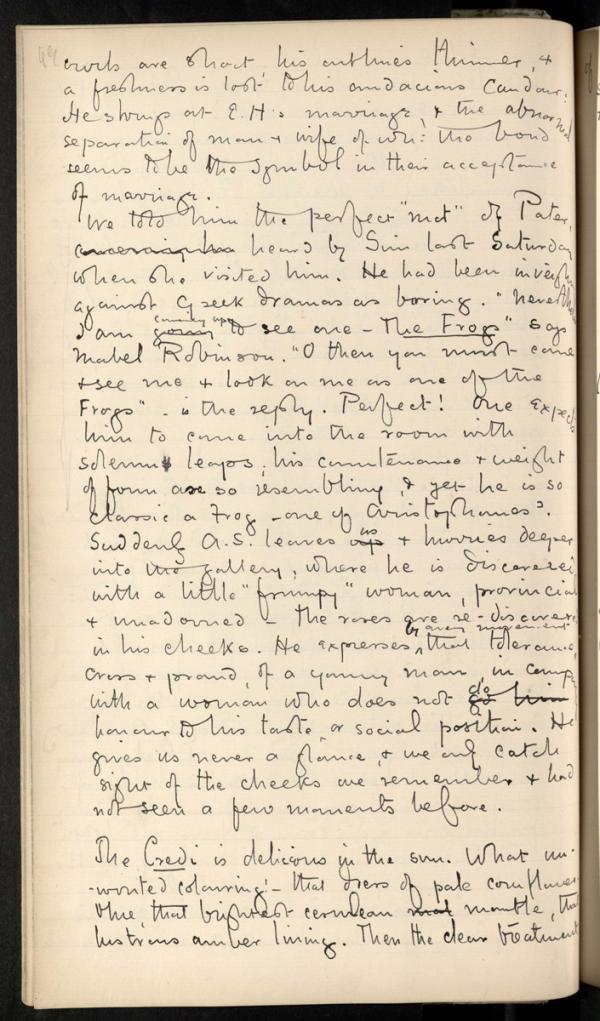 curls are short, his outlines thinner, &
a freshness is lost to his audacious candour.
He shrugs at E.H.'s marriage, & the abnormal
separation of man & wife of wh: the bond
seems to be the symbol in their acceptance
of marriage.
We told him the perfect "mot" of Pater,
heard by Sim last Saturday
when she visited him. He had been inveighing
against Greek dramas as boring. "Nevertheless
I am coming up going to see one – The Frogs" says
Mabel Robinson. "O then you must come
& see me & look on me as one of the
Frogs" – is the reply. Perfect! One expects
him to come into the room with
solemn leaps, his countenance & weight
of form are so resembling, & yet he is so
classic a Frog – one of Aristophanes'.
Suddenly A.S. leaves us & hurries deeper
into the gallery, where he is discovered
with a little "frumpy" woman, provincial
& unadorned – the roses are re-discovered
in his cheeks. He expresses by every movement that tolerance,
cross & proud, of a young man in comp
with a woman who does not do him
honour to his taste or social position. He
gives us never a glance, & we only catch
sight of the cheeks we remember & had
not seen a few moments before.
The Credi is delicious in the sun. What un-
-wonted colouring! – that dress of pale cornflower
blue, that brightest cerulean mantle, that
lustrous amber lining. Then the clear treatment